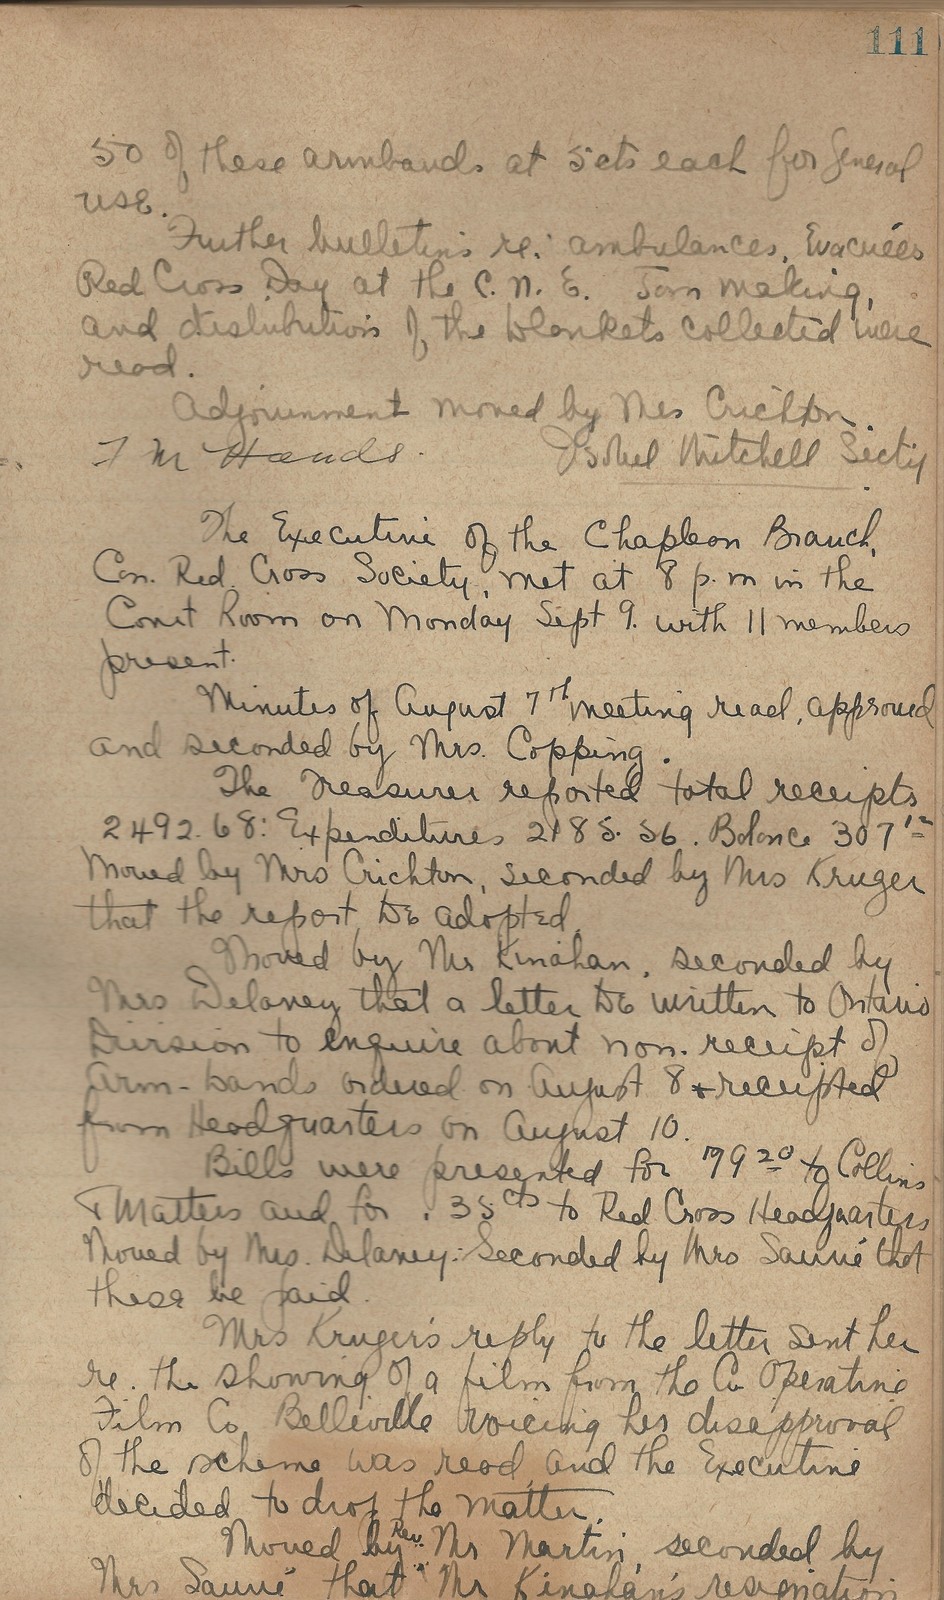 111
50 of these armbands at 5cts each for General
use.
Further bulletins re: ambulances, Evacuées
Red Cross Day at the C. N. E. Jam making,
and distribution of the blankets collected were
read.
Adjournment moved by Mrs Crichton.
T M Hands. Isobel Mitchell Sec'ty
The Executive of the Chapleau Branch,
Can. Red Cross Society, met at 8 p.m in the
Court Room on Monday Sept 9. with 11 members
present.
Minutes of August 7th meeting read, approved
and seconded by Mrs. Copping.
The Treasurer reported total receipts
2492.68: Expenditures 2185.56. Balance 307 12
Moved by Mrs Crichton, seconded by Mrs Kruger
that the report be adopted.
Moved by Mr Kinahan, seconded by
Mrs Delaney that a letter be written to Ontario
Division to enquire about non-receipt of
Arm-bands ordered on August 8 & receipted
from Headquarters on August 10.
Bills were presented for 79 20 to Collins
& Matters and for .35 cts to Red Cross Headquarters
Moved by Mrs. Delaney: Seconded by Mrs Sauvé that
these be paid.
Mrs Kruger's reply to the letter sent her
re. the showing of a film from the Co Operative
Film Co Belleville voicing her disapproval
of the scheme was read and the Executive
decided to drop the matter.
Moved by Rev. Mr Martin, seconded by
Mrs Sauvé that Mr Kinahan's resignation